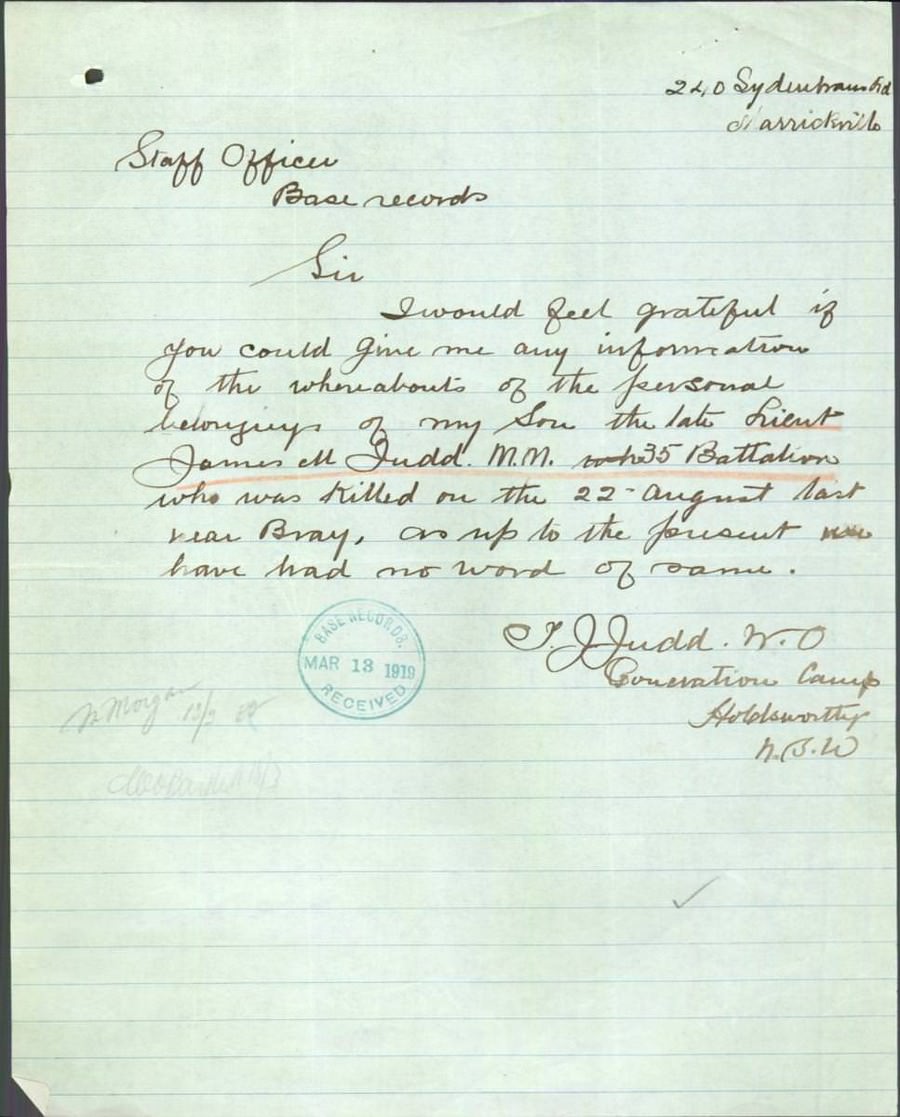 240 Sydenham Rd
Marrickville
Staff Officer
Base records
Sir
I would feel grateful if
you could give me any information
of the whereabouts of the personal
belongings of my Son the late Lieut
James M Judd. M.M. 35 Battalion
who was killed on the 22 August last
near Bray, as up to the present
have had no word of same.
BASE RECORDS.
MAR 13 1919
RECEIVED
T. J Judd. W. O
Camp
Holdsworthy
N. S. W
Morgan
13/3